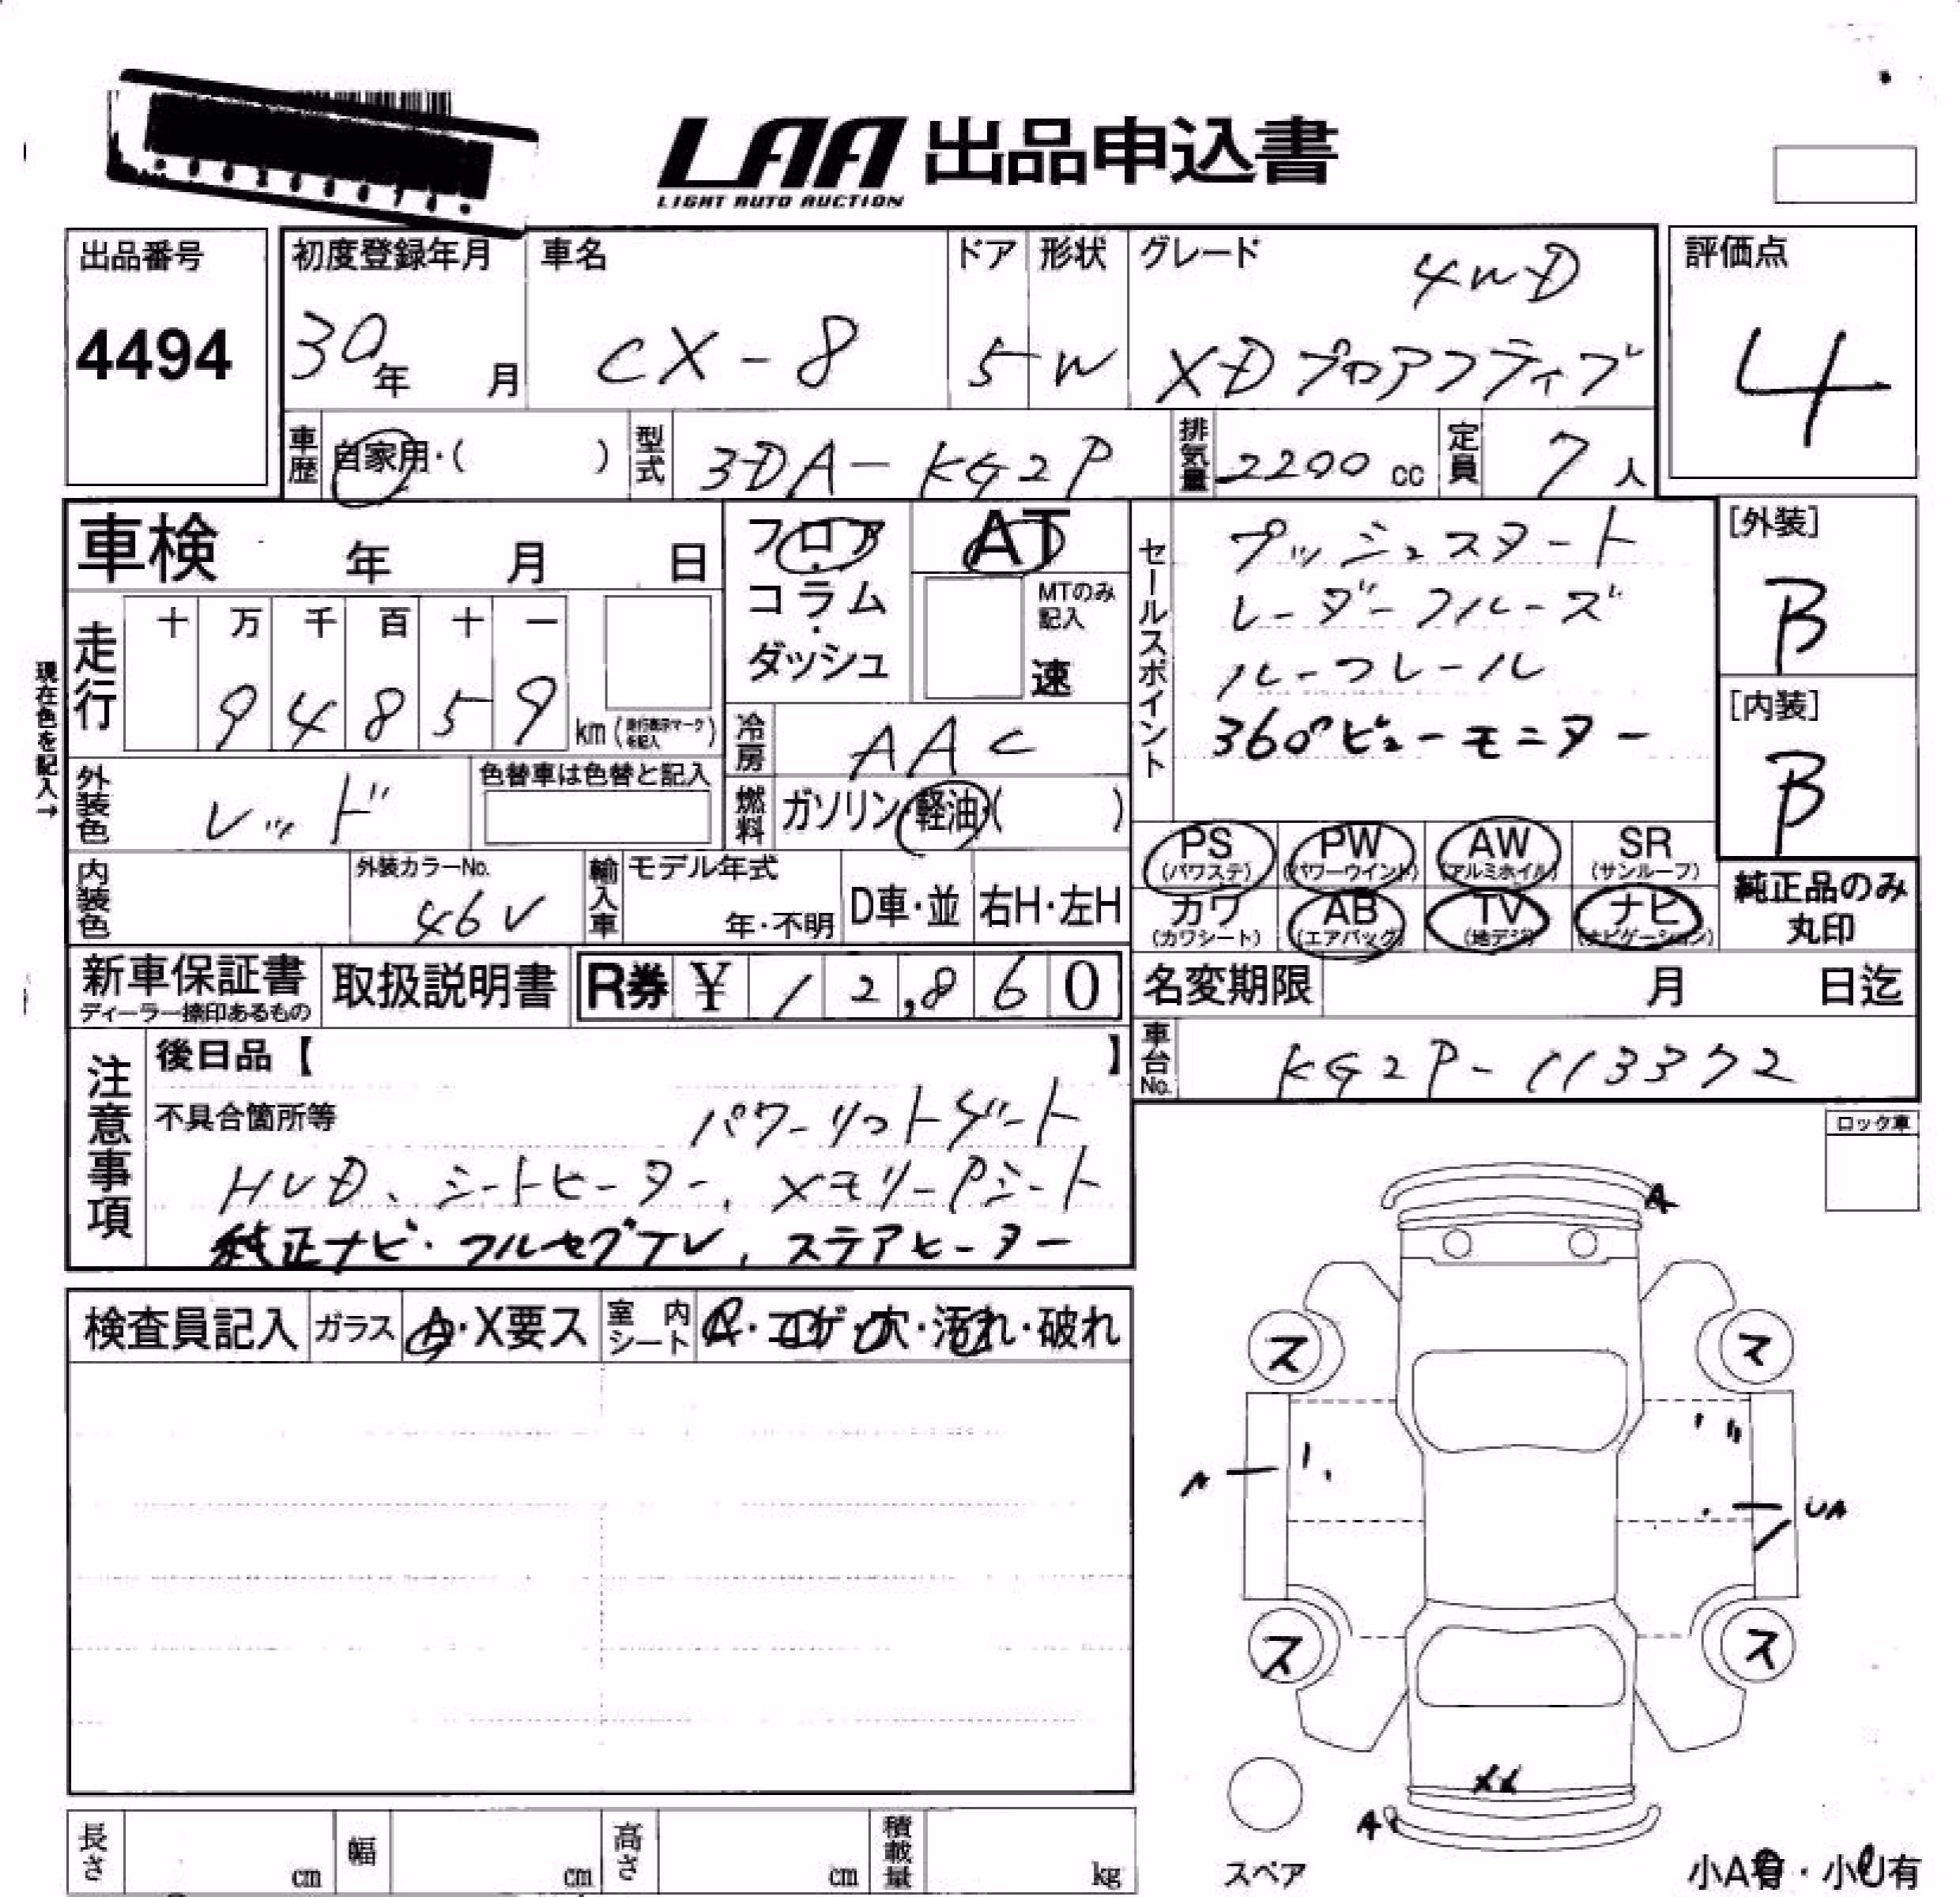 LAA 出品申込書
LIGHT AUTO AUCTION
出品番号
4494
初度登録年月
30年 月
車名
CX-8
ドア
5
形状
W
グレード
4WD
XDプロアクティブ
評価点
4
車歴 自家用・( )
型式 3DA-KG2P
排気量 2200 cc
定員 7人
車検 年 月 日
フロア・コラム・ダッシュ
AT
MTのみ記入
速
セールスポイント
プッシュスタート
レーダークルーズ
ルーフレール
360°ビューモニター
[外装]
B
[内装]
B
現在色を記入→
走行
十 万 千 百 十 一
9 4 8 5 9
km (走行表示マークを記入)
冷房 AAC
外装色 レッド
色替車は色替と記入
燃料 ガソリン・軽油・( )
PS (パワステ)
PW (パワーウインド)
AW (アルミホイル)
SR (サンルーフ)
カワ (カワシート)
AB (エアバッグ)
TV (地デジ)
ナビ (ナビゲーション)
純正品のみ
丸印
内装色
外装カラーNo.
46V
輸入車
モデル年式
年・不明
D車・並
右H・左H
新車保証書
ディーラー捺印あるもの
取扱説明書
R券 ¥ 12,860
名変期限 月 日迄
車台No. KG2P-113372
注意事項
後日品【 】
不具合箇所等
パワーリフトゲート
HUD、シートヒーター、メモリーPシート
純正ナビ・フルセグTV、ステアヒーター
ロック車
検査員記入
ガラス A・X要ス
室内シート A・コゲ・穴・汚れ・破れ
A
ス
ス
A
UA
ス
ス
XX
A
スペア
小A有・小U有
長さ cm
幅 cm
高さ cm
積載量 kg